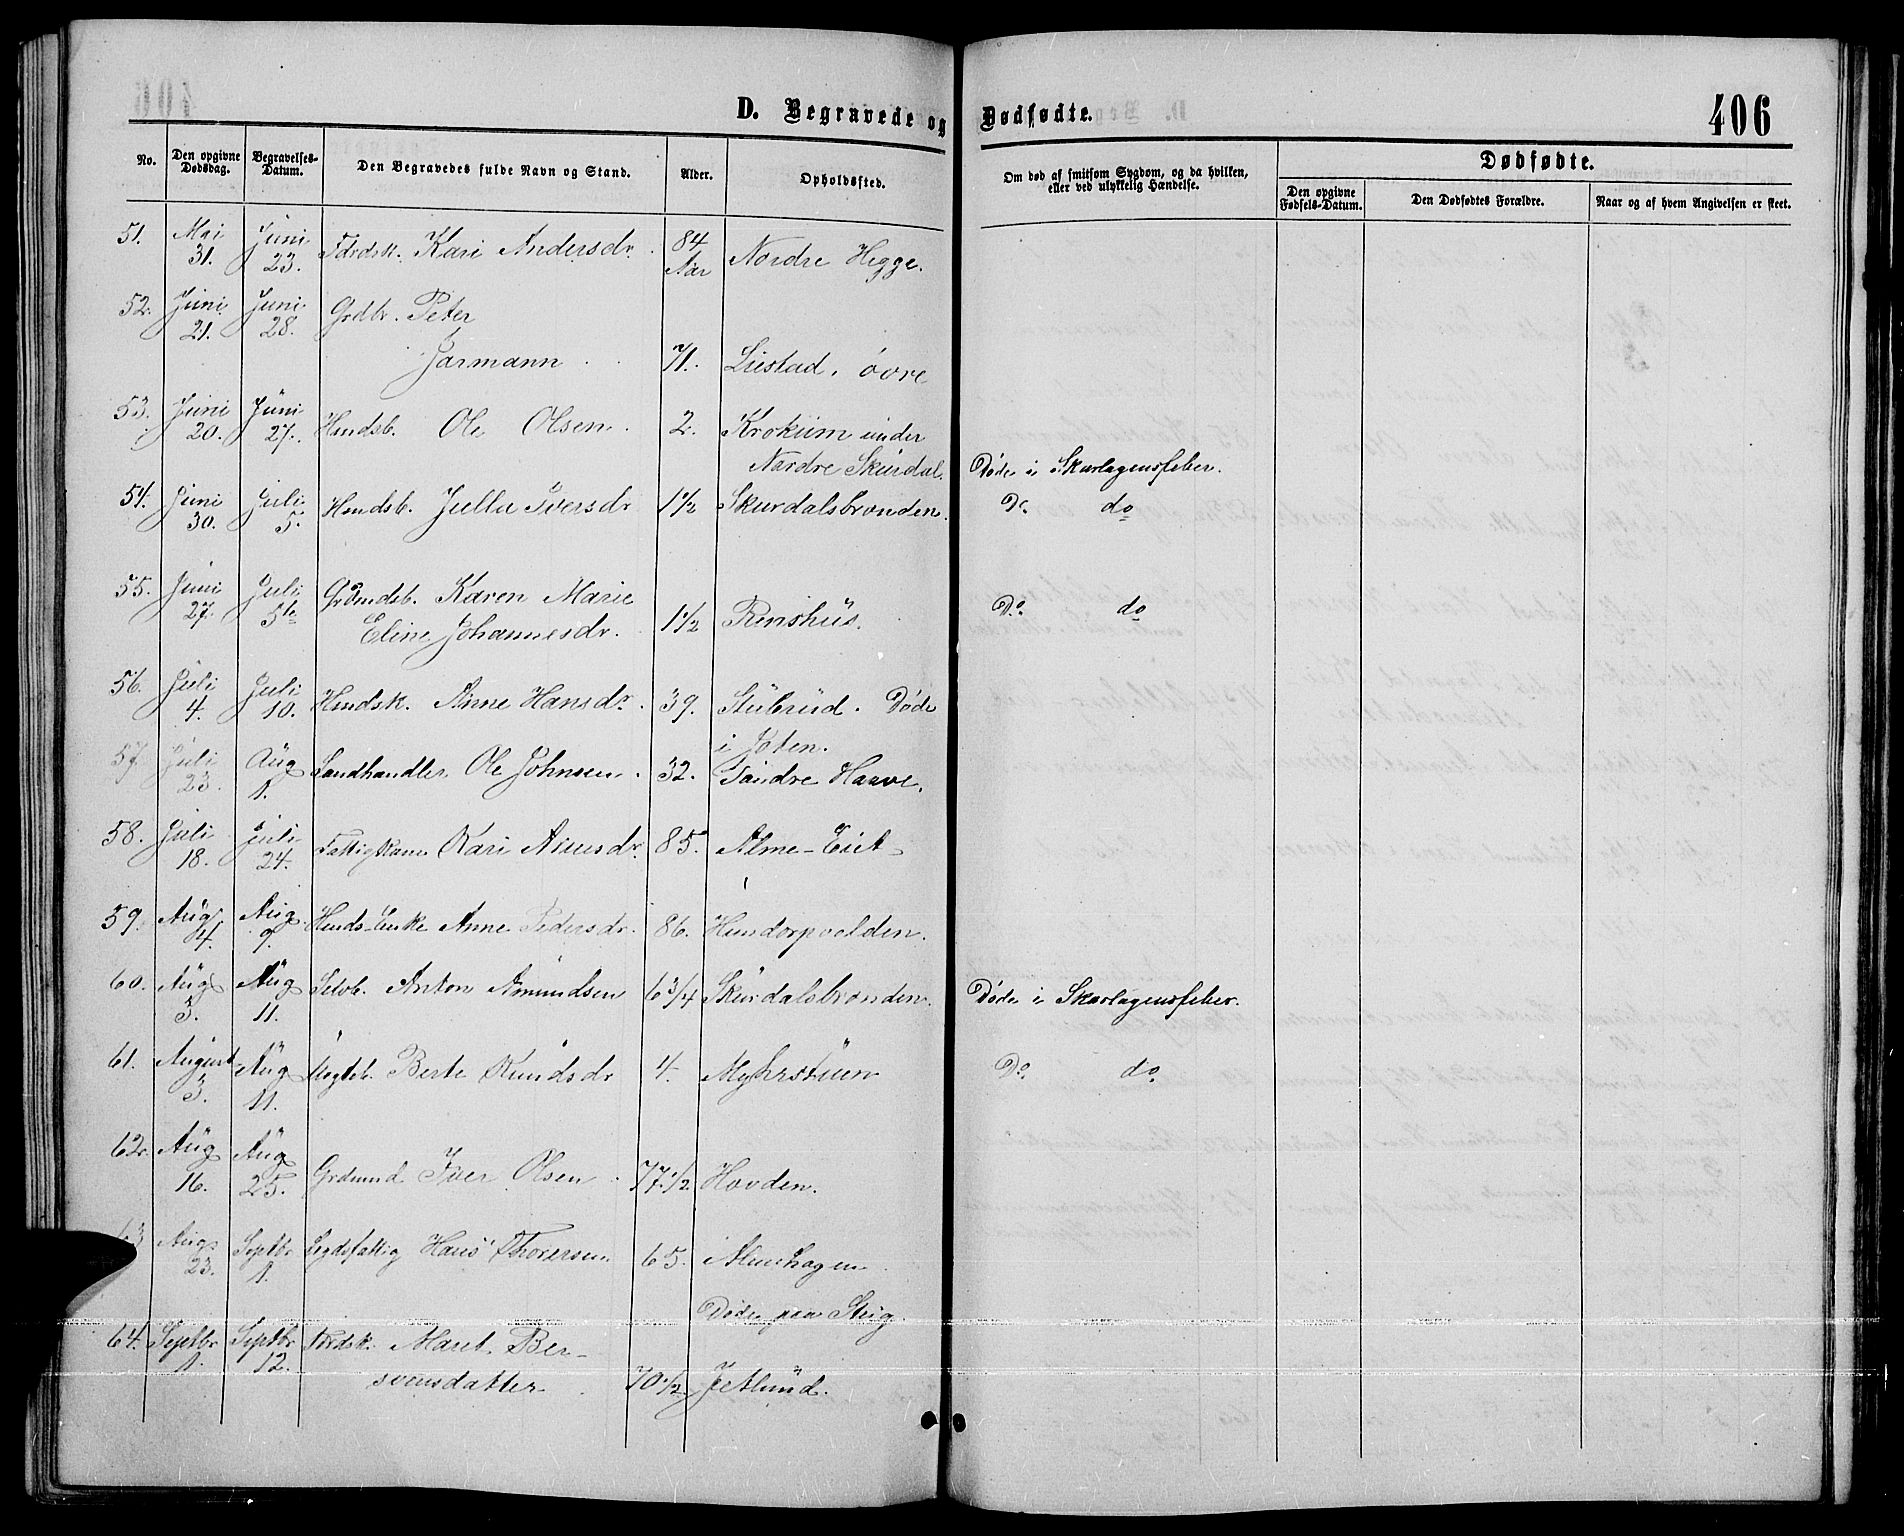 D. Begravede og Dødfødte. 406
No. Den opgivne Dødsdag. Begravelses-Datum. Den Begravedes fulde Navn og Stand. Alder. Opholdssted. Om død af smitsom Sygdom, og da hvilken, eller ved ulykkelig Hændelse. Dødfødte.
Den opgivne Fødsels-Datum. Den Dødfødtes Forældre. Naar og af hvem Angivelsen er skeet.
51. Mai 31. Juni 23. Fdrdsk. Kari Andersdr. 84 Aar Nordre Hegge.
52. Juni 21. Juni 28. Grdbr. Peter
Jarmann 71. Liestad, övre
53. Juni 20. Juni 27. Hmdsb. Ole Olsen. 2. Krokum under
Nordre Skurdal. Døde i Skarlagensfeber.
54. Juni 30. Juli 5. Hmdsb. Julla Iversdr 1 1/2 Skurdalsbronden. Do. do
55. Juni 27. Juli 5te Karen Marie
Eline Johannesdr. 1 1/2 Do. do
56. Juli 4. Juli 10. Hmdsk. Anne Hansdr. 39. Stubrud. Døde
i Joten.
57. Juli 23. Aug 1. Landhandler Ole Johnsen. 32. Søndre Haave.
58. Juli 18. Juli 24. Fattigkane Kari 85. Alme-Eiet
59. Aug 4. Aug 9. Hmds-Enke Anne Pedersdr. 86. Hundorpvolden.
60. Aug 5. Aug 11. Selvb. Anton Amundsen 6 3/4 Skurdalsbronden. Døde i Skarlagensfeber.
61. August 3. Aug 11. Berte Knudsdr 4. Myhrstuen Do. do.
62. Aug 16. Aug 25. Grdmnd Iver Olsen 77 1/2 Hovden.
63 Aug. 23. Septbr 1. Legdsfattig Hans Thoresen. 65. Almehagen
Døde paa Steig.
64. Septbr 1. Septbr 12. Fdrdsk. Marit Ber-
svensdatter 70 1/2 Jetlund.